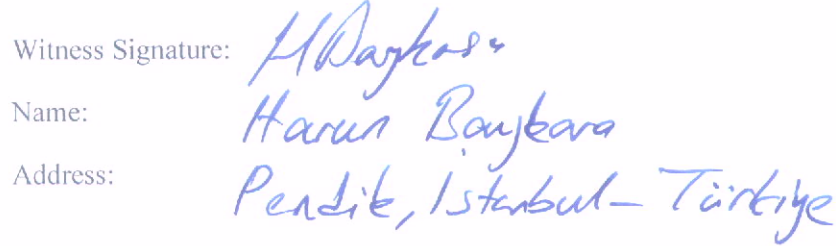 Witness Signature: HBaykara
Name: Harun Baykara
Address: Pendik, Istanbul – Türkiye